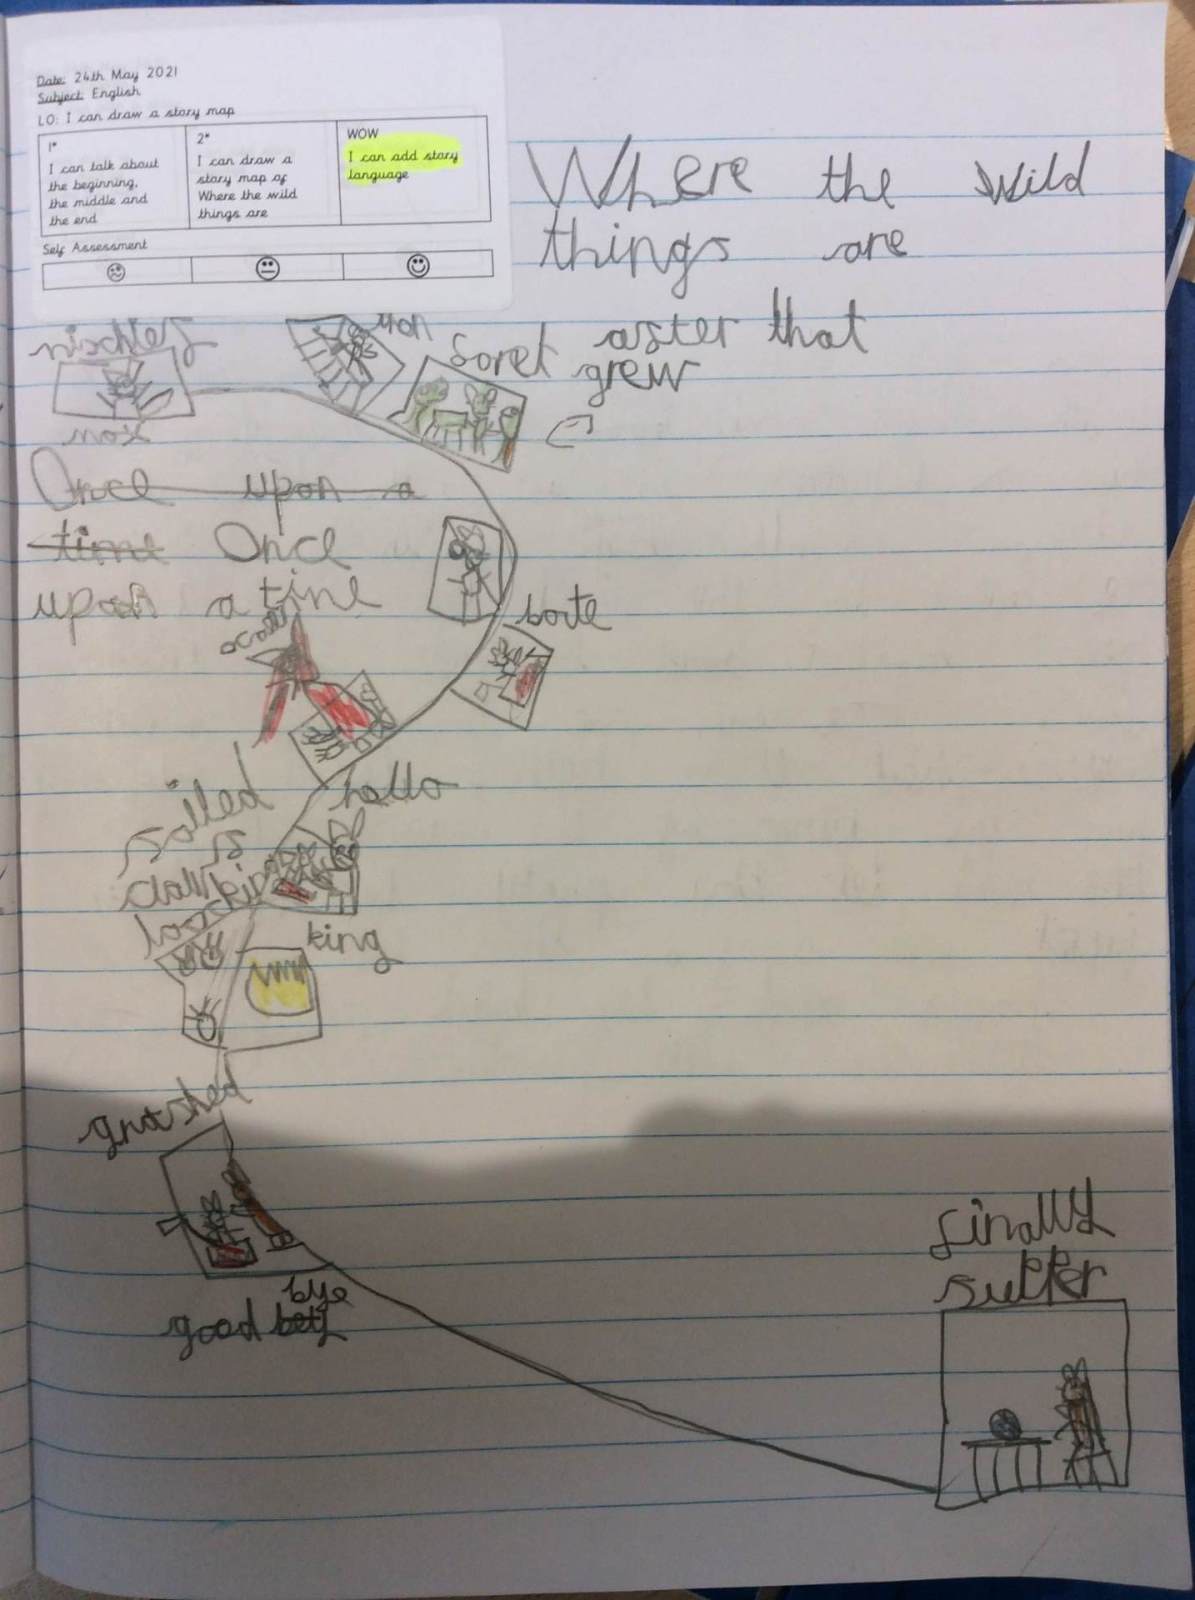 Date: 24th May 2021
Subject: English
LO: I can draw a story map
1*
I can talk about
the beginning,
the middle and
the end
2*
I can draw a
story map of
Where the wild
things are
WOW
I can add story
language
Self Assessment
Where the wild
things are
aster that
grew
Once upon a
time Once
upon a tine
boite
hallo
sailed
king
gnashed
bye
good
finally
supper